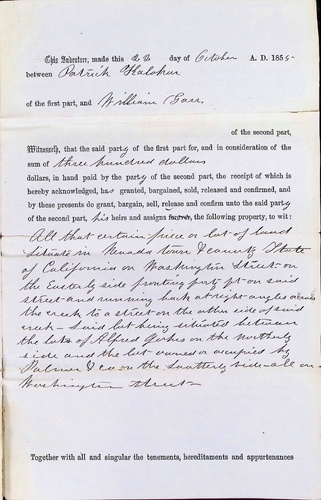 This Indenture, made this 22 day of October A. D. 1855
between Patrick
of the first part, and William
of the second part,
Witnesseth, that the said party of the first part for, and in consideration of the
sum of three hundred dollars
dollars, in hand paid by the party of the second part, the receipt of which is
hereby acknowledged, has granted, bargained, sold, released and confirmed, and
by these presents do grant, bargain, sell, release and confirm unto the said party
of the second part, his heirs and assigns forever, the following property, to wit:
All that certain piece or lot of land
situate in Nevada town & county State
of California on Washington Street on
the Easterly side fronting forty ft on said
street and running back at right angles across
the creek to a street on the other side of said
creek - Said lot being situated between
the lots of Alfred on the northerly
side and the lot owned or occupied by
Palmer & co on the southerly side all on
Washington street
Together with all and singular the tenements, hereditaments and appurtenances